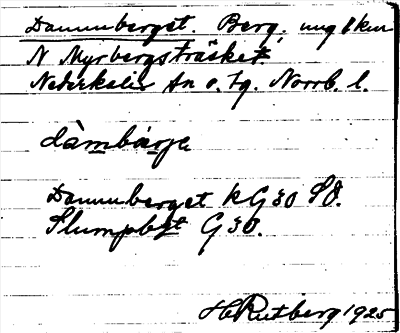 Dammberget. Berg, ung 1 km
N Myrbergsträsket
Nederkalix sn o. tg. Norrb. l.
dàmbárje
Dammberget kG30 SO.
Slumpbgt G30.
H Rutberg 1925